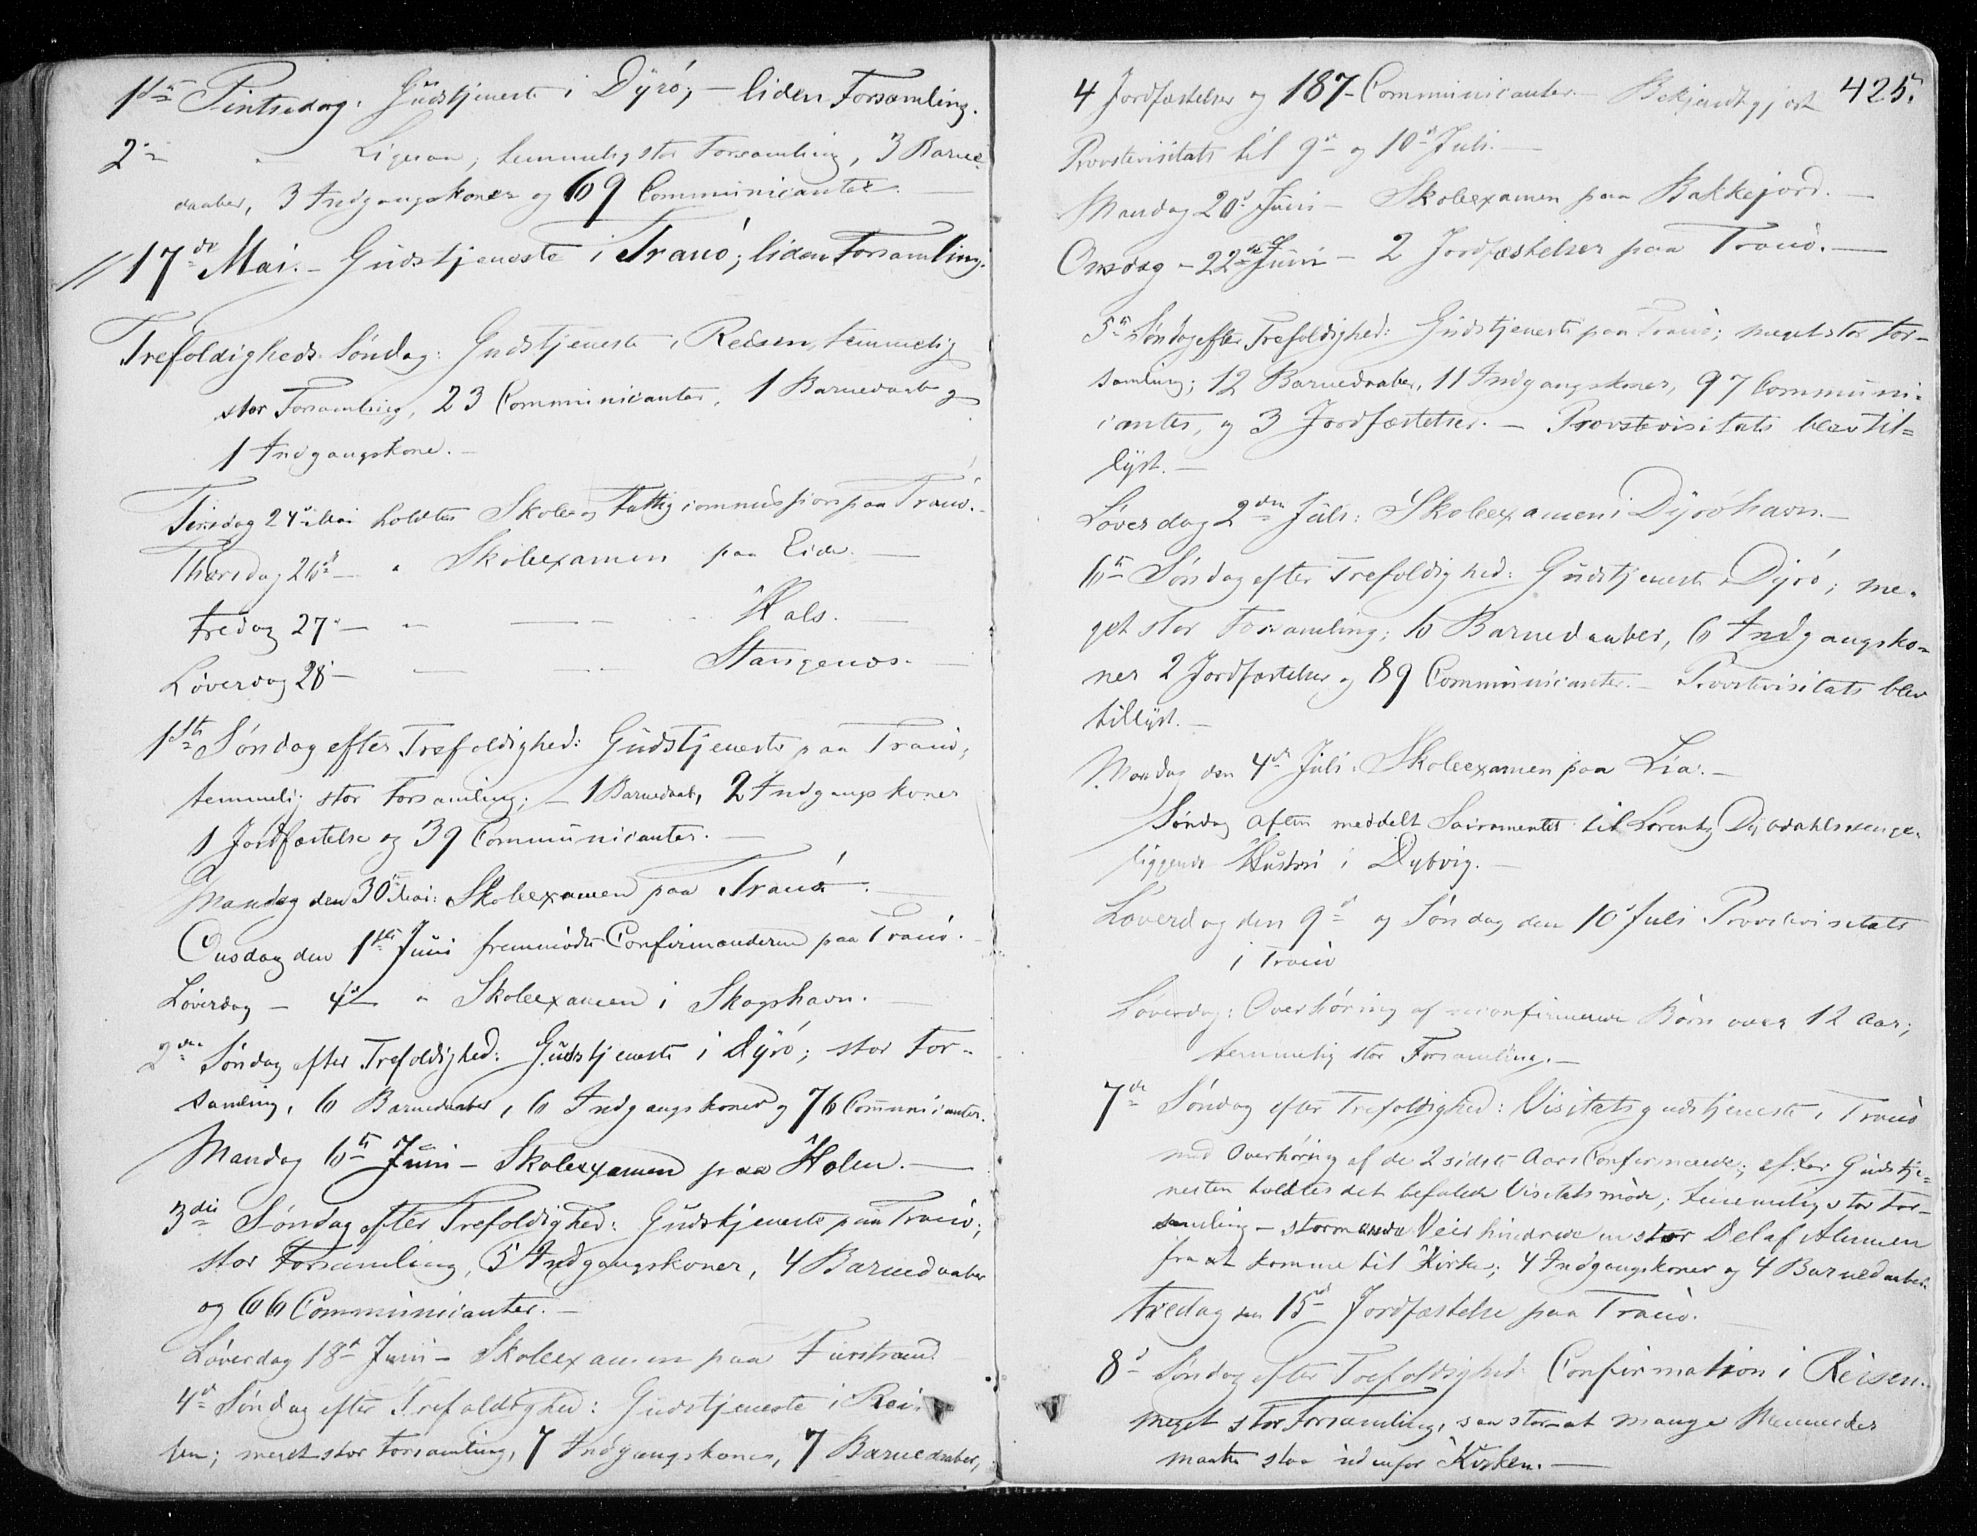 1ste Pintsedag: Gudstjeneste i Dyrö; – liden Forsamling.
2den " Ligesaa, temmelig stor Forsamling, 3 Barne-
daaber, 3 Indgangskoner og 69 Communicanter. —
// 17de Mai. – Gudstjeneste i Tranö; liden Forsamling.
Trefoldigheds Söndag: Gudstjeneste i Reisen, temmelig
stor Forsamling, 23 Communicanter, 1 Barnedaab og
1 Indgangskone. –
Tirsdag 24de Mai holdtes Skole og Fattigcommission paa Tranö. –
Thorsdag 26de – " Skoleexamen paa Eide. —
Fredag 27de – " — " Hals. —
Löverdag 28 – — — Stangenes. —
1ste Söndag efter Trefoldighed: Gudstjeneste paa Tranö,
temmelig stor Forsamling; – 1 Barnedaab, 2 Indgangskoner
1 Jordfæstelse og 39 Communicanter. —
Mandag den 30te Mai: Skoleexamen paa Tranö. —
Onsdag den 1ste Juni fremmödte Confirmanderne paa Tranö. –
Löverdag – 4de – " Skoleexamen i Skogshavn.
2den Söndag efter Trefoldighed: Gudstjeneste i Dyrö; stor For-
samling, 6 Barnedaaber, 6 Indgangskoner og 76 Communicanter.
Mandag 6te Juni – Skoleexamen paa Holm. —
3die Söndag efter Trefoldighed: Gudstjeneste paa Tranö;
stor Forsamling, 5 Indgangskoner, 4 Barnedaaber
og 66 Communicanter. –
Löverdag 18de Juni – Skoleexamen paa Furstrand
4de Söndag efter Trefoldighed: Gudstjeneste i Rei-
sen; meget stor Forsamling, 7 Indgangskoner, 7 Barnedaaber,
425.
4 Jordfæstelser og 187 – Communicanter. – Bekjendtgjort
Provstevisitats til 9de og 10de Juli. —
Mandag 20de Juni – Skoleexamen paa Bakkejord. —
Onsdag – 22de Juni – 2 Jordfæstelser paa Tranö. —
5te Söndag efter Trefoldighed: Gudstjeneste paa Tranö; meget stor For-
samling; 12 Barnedaaber, 11 Indgangskoner, 97 Communi-
canter, og 3 Jordfæstelser. – Provstevisitats blev til-
lyst. –
Löverdag 2den Juli: Skoleexamen i Dyröhavn. –
6te Söndag efter Trefoldighed: Gudstjeneste i Dyrö; me-
get stor Forsamling; 6 Barnedaaber, 6 Indgangsko-
ner 2 Jordfæstelser og 89 Communicanter. – Provstevisitats blev
tillyst. –
Mandag den 4de Juli. Skoleexamen paa Lia. –
Söndag Aften meddelt Sacramentet til Lorentz Dybdahls senge-
liggende Hustru i Dybvig. –
Löverdag den 9de og Söndag den 10de Juli Provstevisitats
i Tranö
Löverdag: Overhöring af uconfirmerede Börn over 12 Aar;
temmelig stor Forsamling. –
7de Söndag efter Trefoldighed: Visitatsgudstjeneste i Tranö
med Overhöring af de 2 sidste Aars Confirmerede; efter Gudstje-
nesten holdtes det befalede Visitatsmöde; temmelig stor For-
samling – stormende Veir hindrede en stor Del af Almuen
fra at komme til Kirke; 4 Indgangskoner og 4 Barnedaaber.
Fredag den 15de Jordfæstelse paa Tranö.
8de Söndag efter Trefoldighed: Confirmation i Reisen.
meget stor Forsamling, saa stor at mange Mennesker
maatte staa udenfor Kirken. —